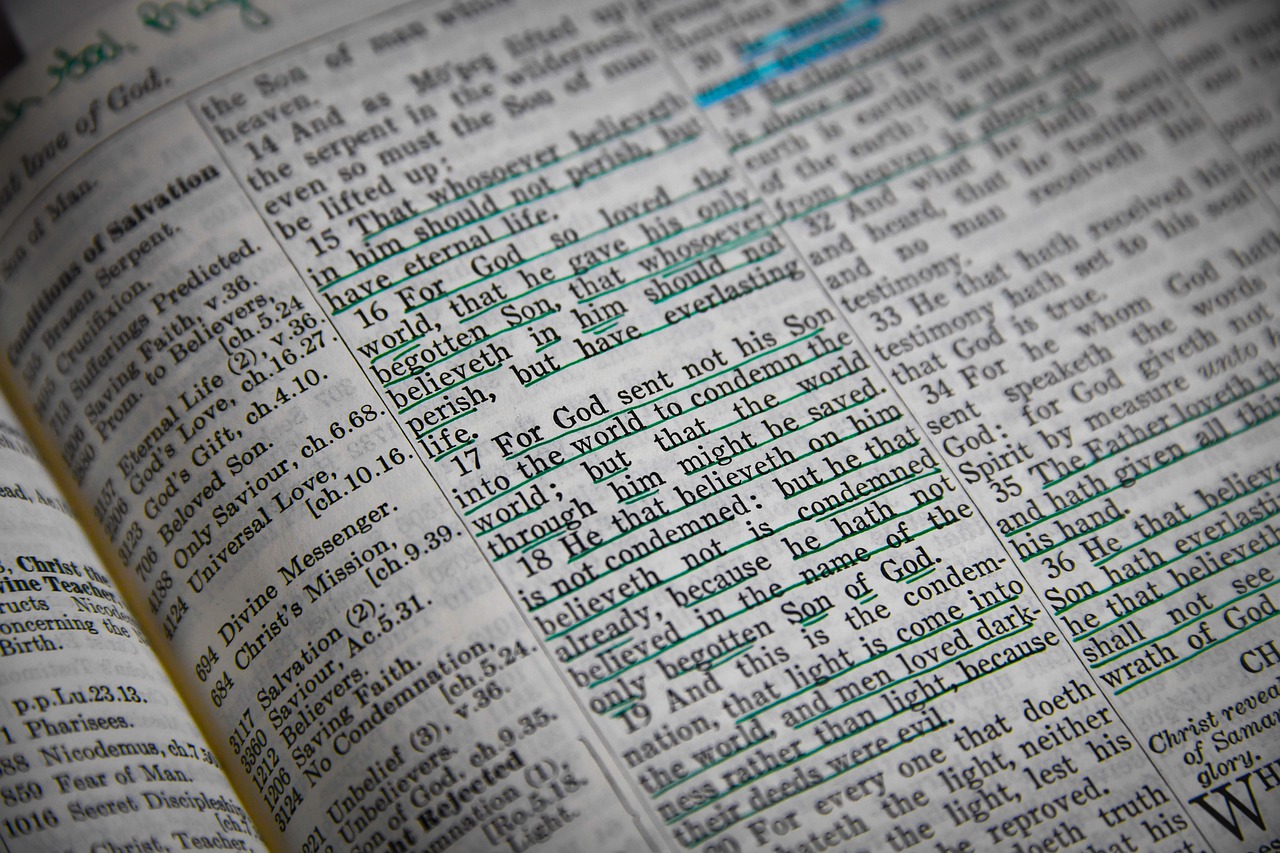 God, Pray
love of God.
Son of Man.
Conditions of Salvation
Brazen Serpent.
Crucifixion.
Sufferings Predicted.
Saving Faith, v.36.
Prom. to Believers,
[ch.5.24
Eternal Life (2), v.36.
God's Love, ch.16.27.
God's Gift, ch.4.10.
Beloved Son.
4188 Only Saviour, ch.6.68.
Universal Love,
[ch.10.16.
694 Divine Messenger.
684 Christ's Mission,
[ch.9.39.
3117 Salvation (2).
3360 Saviour, Ac.5.31.
1212 Believers.
1206 Saving Faith.
3124 No Condemnation,
[ch.5.24.
Unbelief (3), v.36.
Unbelievers.
Son of God, ch.9.35.
Rejected
(1),
[Ro.5.18.
Light.
Christ the
Teacher
Nicod
concerning the
Birth.
p.p.Lu.23.13.
1 Pharisees.
Nicodemus, ch.7.50
859 Fear of Man.
1016 Secret Discipleship
Christ, Teacher,
the Son of man
heaven.
14 And as Mo'ses lifted up
the serpent in the wilderness,
even so must the Son of man
be lifted up:
15 That whosoever believeth
in him should not perish, but
have eternal life.
16 For God so loved the
world, that he gave his only
begotten Son, that whosoever
believeth in him should not
perish, but have everlasting
life.
17 For God sent not his Son
into the world to condemn the
world; but that the world
through him might be saved.
18 He that believeth on him
is not condemned: but he that
believeth not is condemned
already, because he hath not
believed in the name of the
only begotten Son of God.
19 And this is the condem-
nation, that light is come into
the world, and men loved dark-
ness rather than light, because
their deeds were evil.
20 For every one that doeth
hateth the light, neither
the light, lest his
be reproved.
doeth truth
that his
30
31 He that cometh
is above all: he that is of the
earth is earthly, and speaketh
of the earth: he that cometh
from heaven is above all.
32 And what he hath seen
and heard, that he testifieth;
and no man receiveth his
testimony.
33 He that hath received his
testimony hath set to his seal
that God is true.
34 For he whom God hath
sent speaketh the words
God: for God giveth not
Spirit by measure unto
35 The Father loveth the
and hath given all thi
his hand.
36 He that believe
Son hath everlasti
he that believeth
shall not see
wrath of God
CH
Christ revea
of Samar
glory.
WH